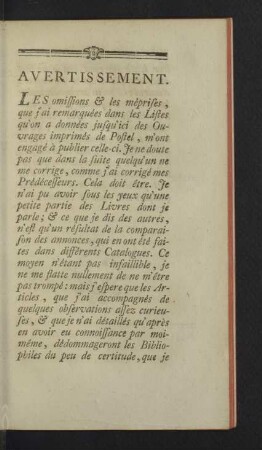 AVERTISSEMENT.
LES omissions & les méprises,
que j'ai remarquées dans les Listes
qu'on a données jusqu'ici des Ou-
vrages imprimés de Postel, m'ont
engagé à publier celle-ci. Je ne doute
pas que dans la suite quelqu'un ne
me corrige, comme j'ai corrigé mes
Prédécesseurs. Cela doit être. Je
n'ai pu avoir sous les yeux qu'une
petite partie des Livres dont je
parle; & ce que je dis des autres,
n'est qu'un résultat de la comparai-
son des annonces, qui en ont été fai-
tes dans différents Catalogues. Ce
moyen n'étant pas infaillible, je
ne me flatte nullement de ne m'être
pas trompé: mais j'espere que les Ar-
ticles, que j'ai accompagnés de
quelques observations assez curieu-
ses, & que je n'ai détaillés qu'après
en avoir eu connoissance par moi-
même, dédommageront les Biblio-
philes du peu de certitude, que je